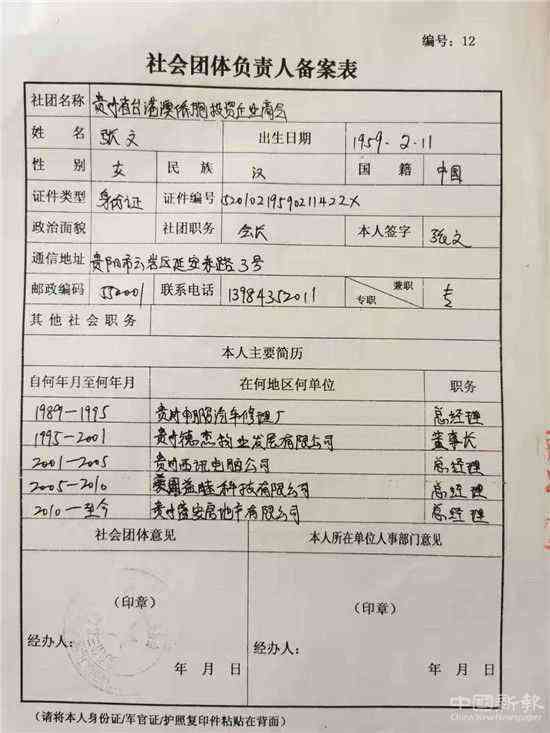 编号：12
社会团体负责人备案表
社团名称 贵州省台港澳侨胞投资企业商会
姓名 张文 出生日期 1959.2.11
性别 女 民族 汉 国籍 中国
证件类型 身份证 证件编号 52010219590211422X
政治面貌 社团职务 会长 本人签字 张文
通信地址 贵阳市云岩区延安东路3号
邮政编码 552001 联系电话 13984352011 兼职 专职 专
其他社会职务
本人主要简历
自何年月至何年月 在何地区何单位 职务
1989—1995 贵州申服汽车修理厂 总经理
1995—2001 贵州德杰物业发展有限公司 董事长
2001—2005 贵州西讯电脑公司 总经理
2005—2010 益睦科技有限公司 总经理
2010—至今 贵州隆安房地产有限公司 总经理
社会团体意见 本人所在单位人事部门意见
（印章） （印章）
经办人： 经办人：
年 月 日 年 月 日
（请将本人身份证/军官证/护照复印件粘贴在背面）
中國新報
China New News